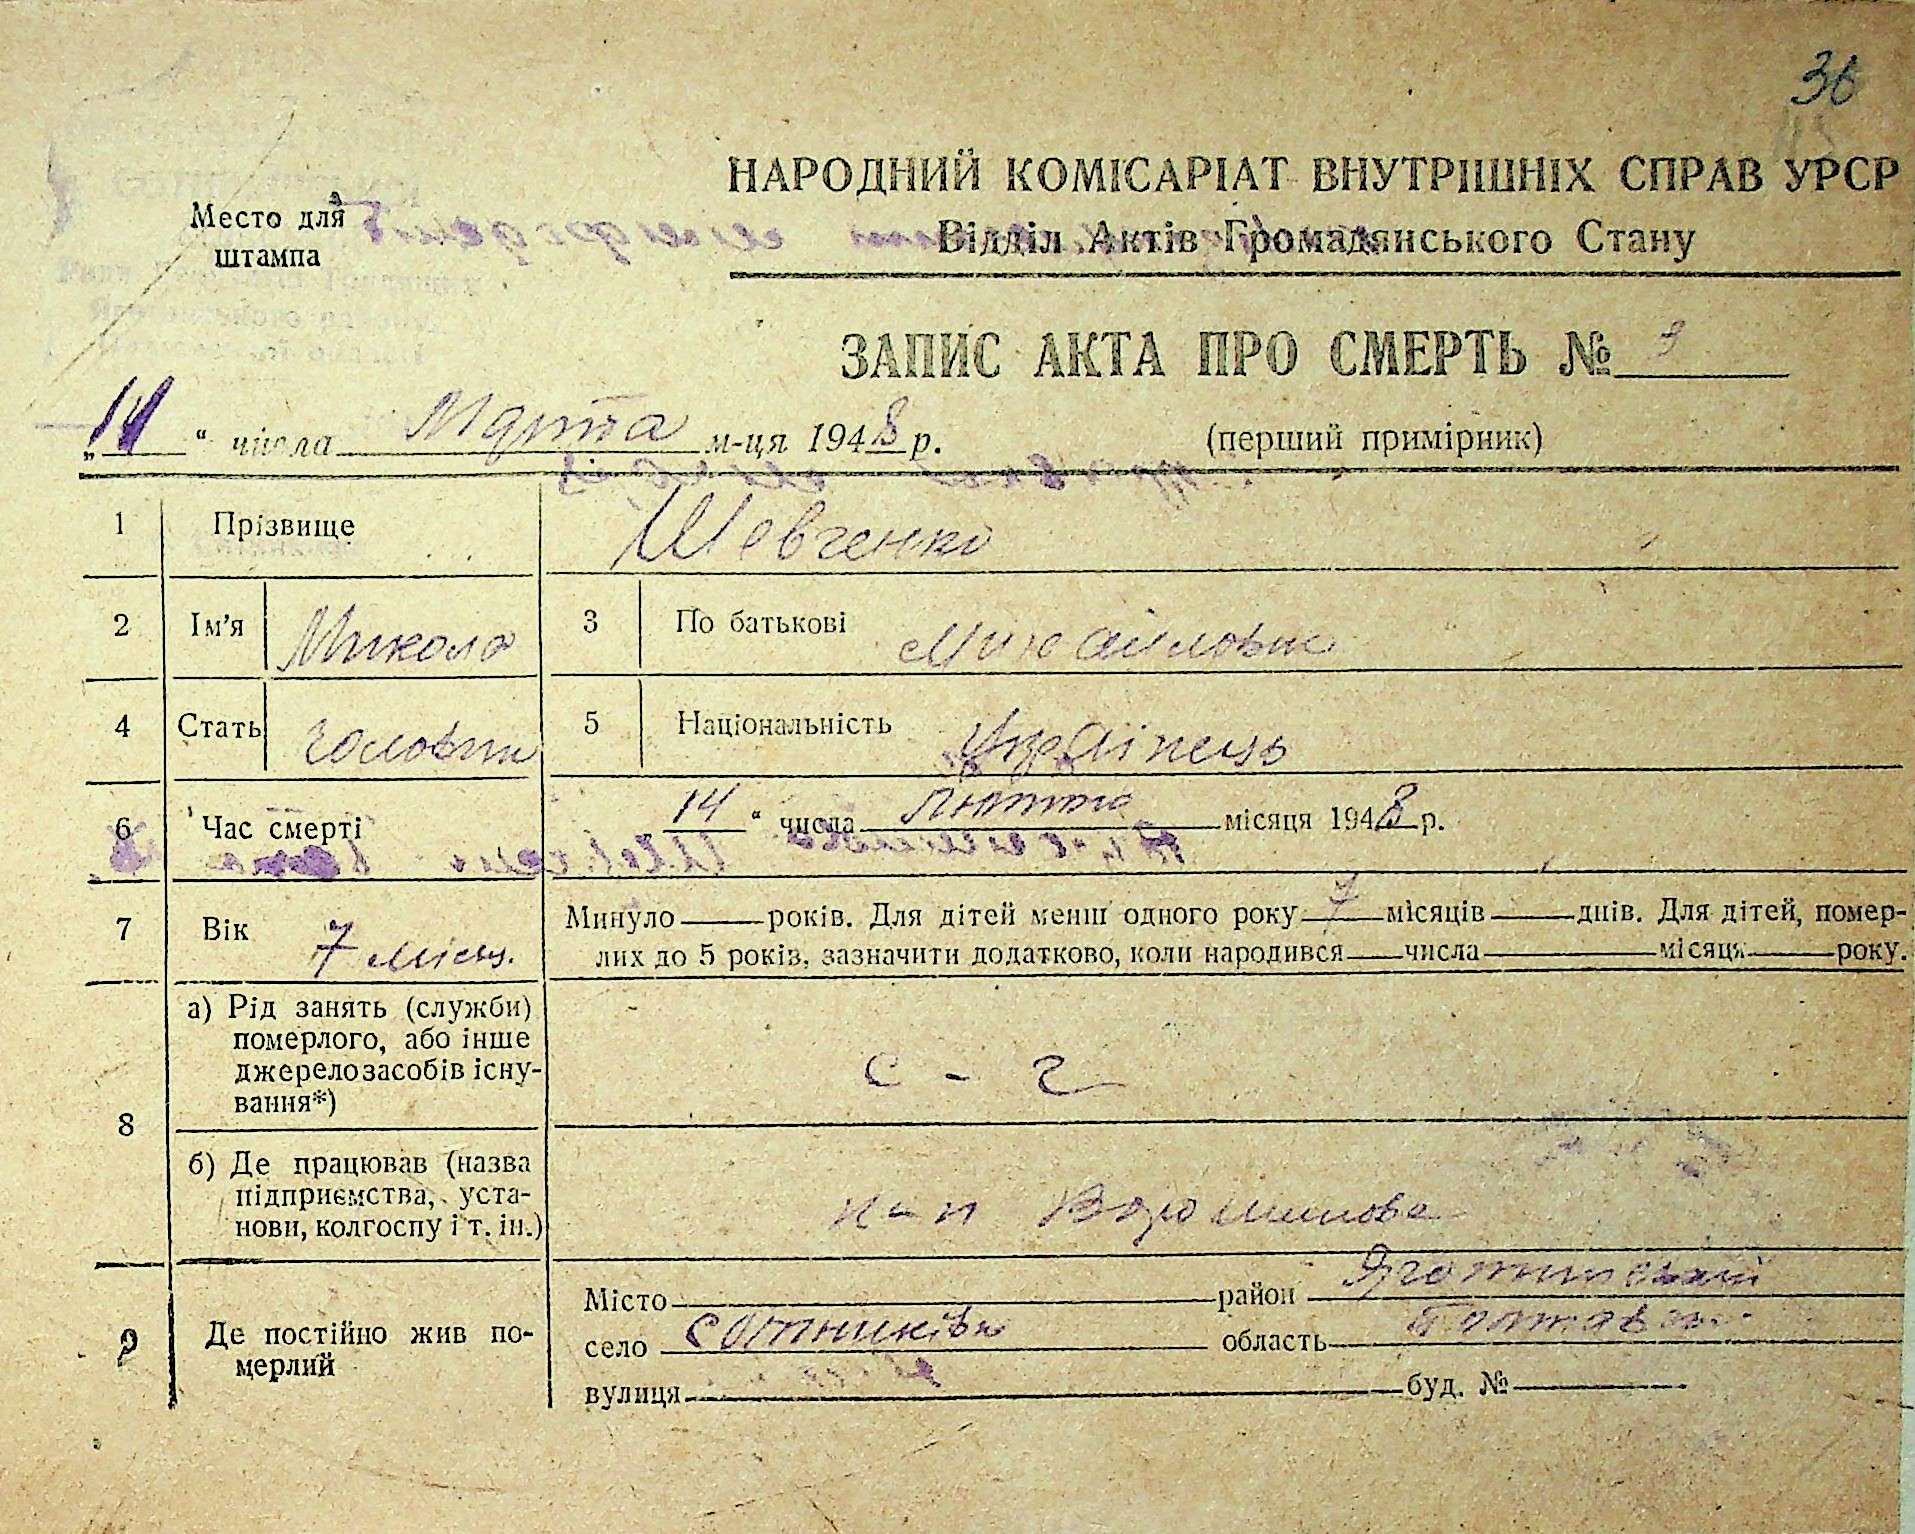 36
НАРОДНИЙ КОМІСАРІАТ ВНУТРІШНІХ СПРАВ УРСР
Место для штампа
Відділ Актів Громадянського Стану
ЗАПИС АКТА ПРО СМЕРТЬ № 9
„14“ числа Марта м-ця 1948 р. (перший примірник)
1 Прізвище Шевченко
2 Ім'я Микола 3 По батькові Михайлович
4 Стать чоловіч 5 Національність Українець
6 Час смерті 14 “ числа Лютого місяця 1948 р.
7 Вік 7 місяц.
Минуло року років. Для дітей менш одного року 7 місяців днів. Для дітей, помер-
лих до 5 років, зазначити додатково, коли народився числа місяця року.
8 а) Рід занять (служби)
померлого, або інше
джерело засобів існу-
вання*)
с - г
б) Де працював (назва
підприємства, уста-
нови, колгоспу і т. ін.)
к-п Ворошилова
9 Де постійно жив по-
мерлий
Місто район Яготинський
село Сотниківка область Полтавськ.
вулиця буд. №